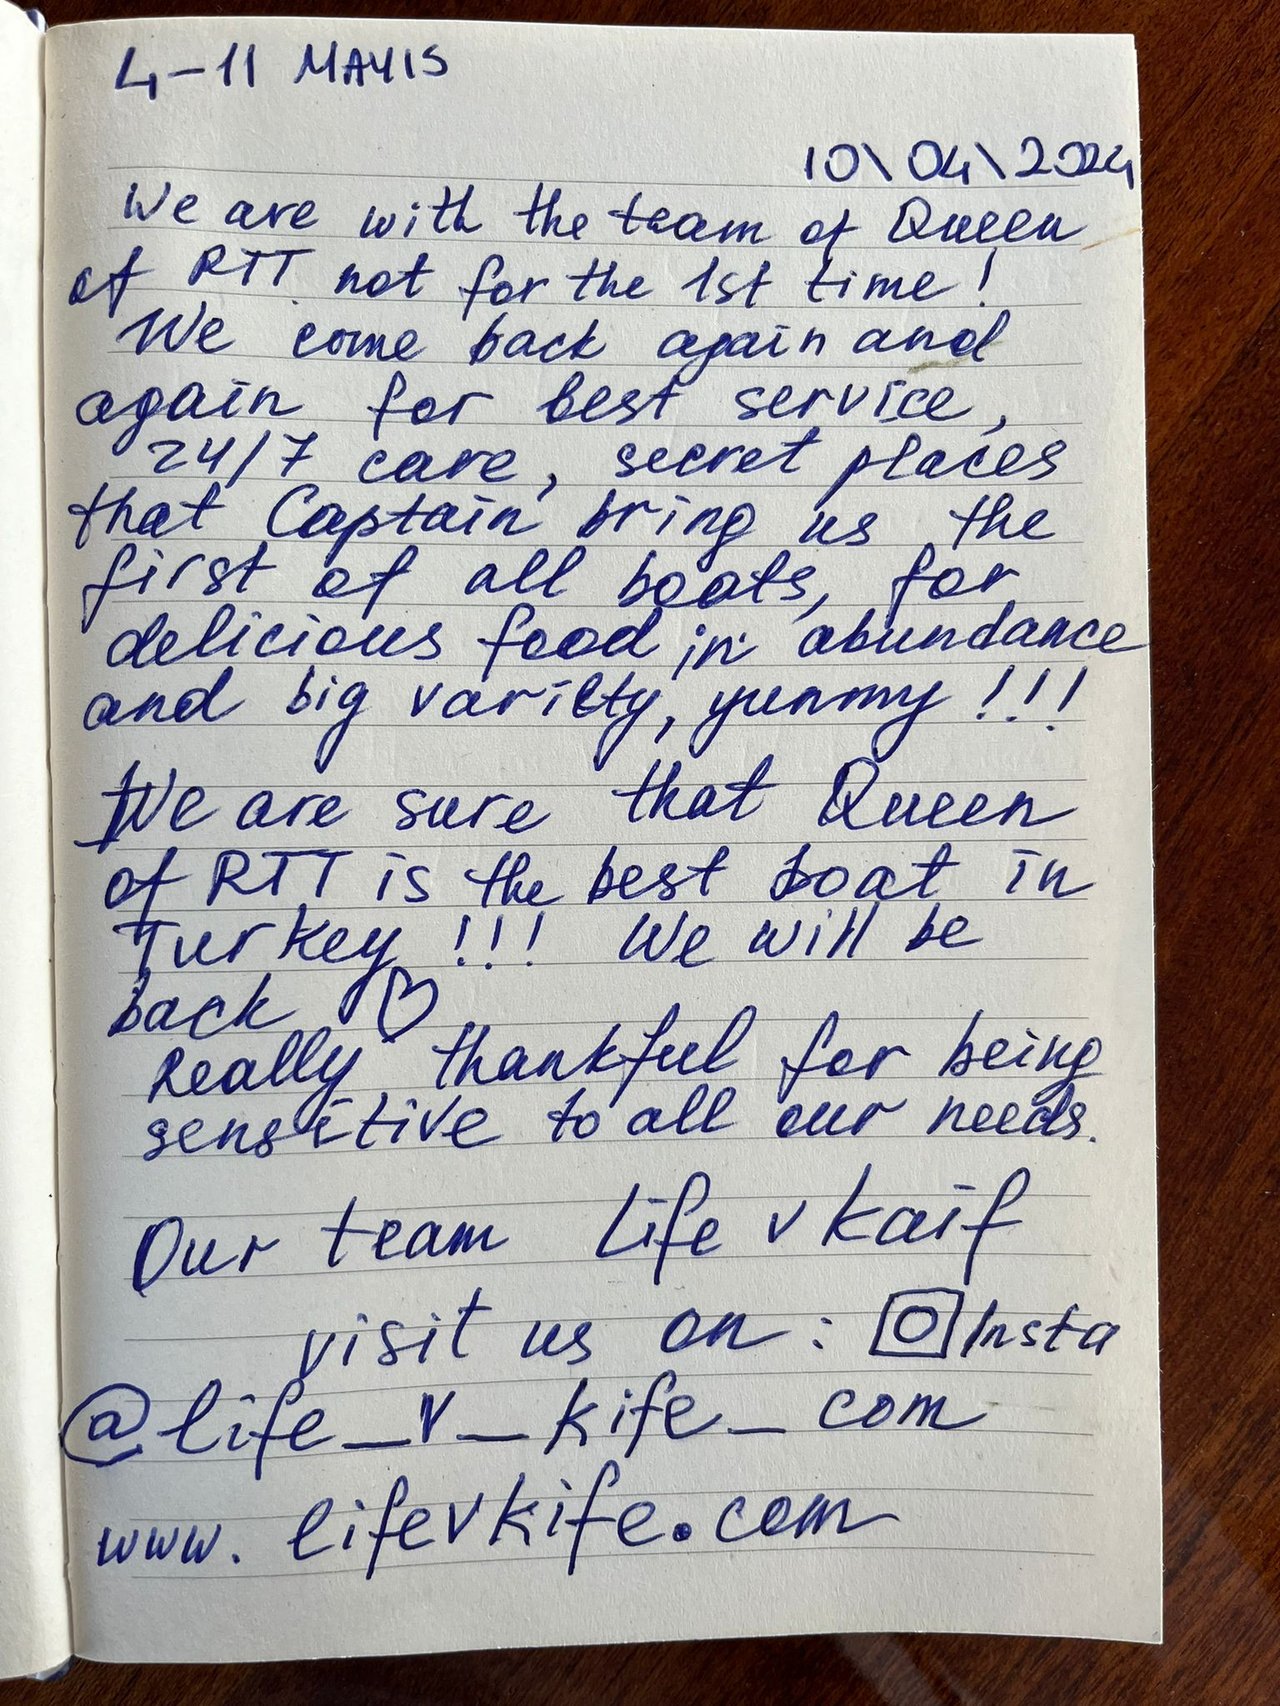 4-11 MAYIS
10\04\2024
We are with the team of Queen
of RTT not for the 1st time!
We come back again and
again for best service,
24/7 care, secret places
that Captain bring us the
first of all boats, for
delicious food in abundance
and big variety, yummy!!!
We are sure that Queen
of RTT is the best boat in
Turkey!!! We will be
back ♡
Really thankful for being
sensitive to all our needs.
Our team Life v kaif
visit us on: Insta
@life_v_kife_com
www.lifevkife.com